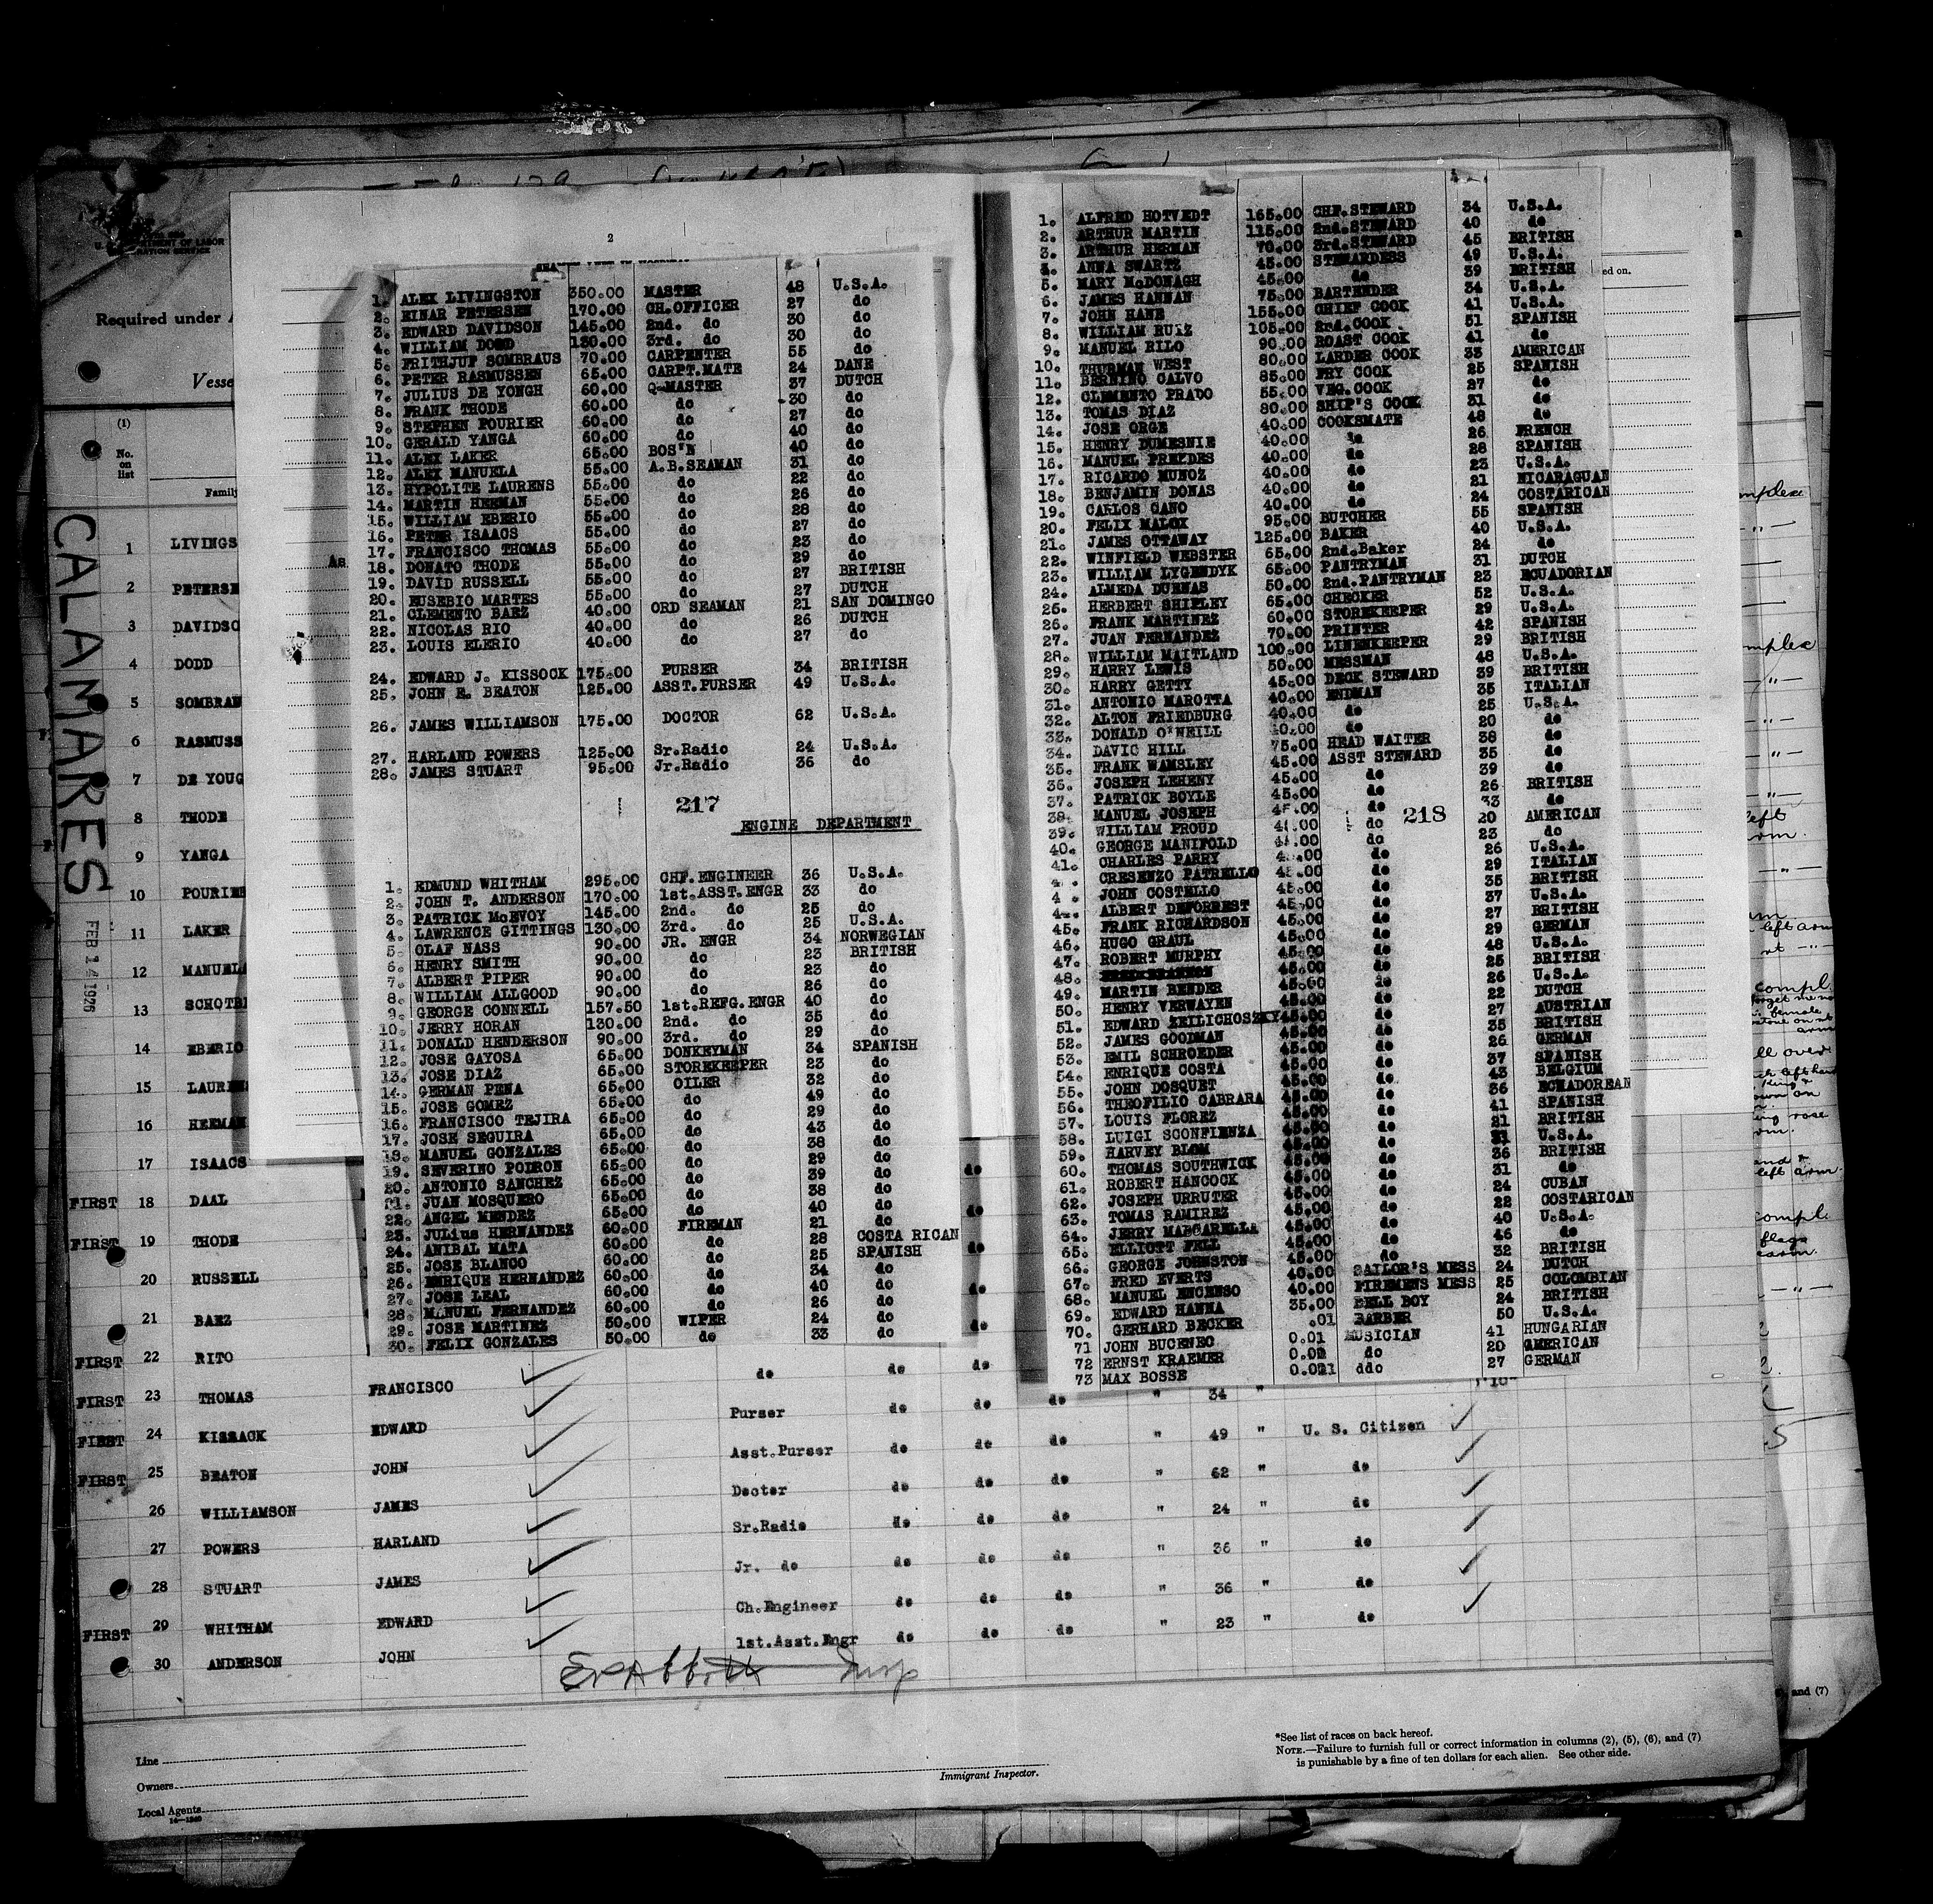 2
1. ALEX LIVINGSTON 350.00 MASTER 48 U.S.A.
2. EINAR PETERSEN 170.00 CH.OFFICER 27 do
3. EDWARD DAVIDSON 145.00 2nd. do 30 do
4. WILLIAM DODD 130.00 3rd. do 30 do
5. FRITHJUF SOMBRAUS 70.00 CARPENTER 55 do
6. PETER RASMUSSEN 65.00 CARPT.MATE 24 DANE
7. JULIUS DE YONGH 60.00 Q-MASTER 37 DUTCH
8. FRANK THODE 60.00 do 30 do
9. STEPHEN POURIER 60.00 do 27 do
10. GERALD YANGA 60.00 do 40 do
11. ALEX LAKER 65.00 BOS'N 40 do
12. ALEX MANUELA 55.00 A.B.SEAMAN 31 do
13. HYPOLITE LAURENS 55.00 do 22 do
14. MARTIN HEEMAN 55.00 do 26 do
15. WILLIAM EBERIO 55.00 do 28 do
16. PETER ISAACS 55.00 do 27 do
17. FRANCISCO THOMAS 55.00 do 23 do
18. DONATO THODE 55.00 do 29 do
19. DAVID RUSSELL 55.00 do 27 BRITISH
20. EUSEBIO MARTES 55.00 do 27 DUTCH
21. CLEMENTO BAEZ 40.00 ORD SEAMAN 21 SAN DOMINGO
22. NICOLAS RIO 40.00 do 26 DUTCH
23. LOUIS ELERIO 40.00 do 27 do
24. EDWARD J. KISSOCK 175.00 PURSER 34 BRITISH
25. JOHN E. BEATON 125.00 ASST.PURSER 49 U.S.A.
26. JAMES WILLIAMSON 175.00 DOCTOR 62 U.S.A.
27. HARLAND POWERS 125.00 Sr.Radio 24 U.S.A.
28. JAMES STUART 95.00 Jr.Radio 36 do
217
ENGINE DEPARTMENT
1. EDMUND WHITHAM 295.00 CHF.ENGINEER 36 U.S.A.
2. JOHN T. ANDERSON 170.00 1st.ASST.ENGR 33 do
3. PATRICK McEVOY 145.00 2nd. do 25 do
4. LAWRENCE GITTINGS 130.00 3rd. do 25 U.S.A.
5. OLAF NASS 90.00 JR. ENGR 34 NORWEGIAN
6. HENRY SMITH 90.00 do 23 BRITISH
7. ALBERT PIPER 90.00 do 23 do
8. WILLIAM ALLGOOD 90.00 do 26 do
9. GEORGE CONNELL 157.50 1st.REFG.ENGR 40 do
10. JERRY HORAN 130.00 2nd. do 35 do
11. DONALD HENDERSON 90.00 3rd. do 29 do
12. JOSE GAYOSA 65.00 DONKEYMAN 34 SPANISH
13. JOSE DIAZ 65.00 STOREKEEPER 23 do
14. GERMAN PENA 65.00 OILER 32 do
15. JOSE GOMEZ 65.00 do 49 do
16. FRANCISCO TEJIRA 65.00 do 29 do
17. JOSE SEGUIRA 65.00 do 43 do
18. MANUEL GONZALES 65.00 do 38 do
19. SEVERINO POIRON 65.00 do 29 do
20. ANTONIO SANCHEZ 65.00 do 39 do
21. JUAN MOSQUERO 65.00 do 38 do
22. ANGEL MENDEZ 65.00 do 40 do
23. JULius HERNANDEZ 60.00 FIREMAN 21 do
24. ANIBAL MATA 60.00 do 28 COSTA RICAN
25. JOSE BLANCO 60.00 do 25 SPANISH
26. ENRIQUE HERNANDEZ 60.00 do 34 do
27. JOSE LEAL 60.00 do 40 do
28. MANUEL FERNANDEZ 60.00 do 26 do
29. JOSE MARTINEZ 50.00 WIPER 24 do
30. FELIX GONZALES 50.00 do 33 do
1. ALFRED HOTVEDT 165.00 CHF.STEWARD 34 U.S.A.
2. ARTHUR MARTIN 115.00 2nd.STEWARD 40 do
3. ARTHUR HERMAN 70.00 3rd.STEWARD 45 BRITISH
4. ANNA SWARTZ 45.00 STEWARDESS 49 U.S.A.
5. MARY McDONAGH 45.00 do 39 BRITISH
6. JAMES HANNAN 75.00 BARTENDER 34 U.S.A.
7. JOHN HANE 155.00 CHIEF COOK 41 U.S.A.
8. WILLIAM RUIZ 105.00 2nd.COOK 51 SPANISH
9. MANUEL RILO 90.00 ROAST COOK 41 do
10. THURMAN WEST 80.00 LARDER COOK 33 AMERICAN
11. BERNINO CALVO 85.00 FRY COOK 25 SPANISH
12. CLEMENTO PRADO 55.00 VEG.COOK 27 do
13. TOMAS DIAZ 80.00 SHIP'S COOK 31 do
14. JOSE ORGE 40.00 COOKSMATE 48 do
15. HENRY DUMESNIE 40.00 do 26 FRENCH
16. MANUEL 40.00 do 28 SPANISH
17. RICARDO MUNOZ 40.00 do 23 U.S.A.
18. BENJAMIN DONAS 40.00 do 21 NICARAGUAN
19. CARLOS CANO 40.00 do 24 COSTARICAN
20. FELIX MALOX 95.00 BUTCHER 55 SPANISH
21. JAMES OTTAWAY 125.00 BAKER 40 U.S.A.
22. WINFIELD WEBSTER 65.00 2nd.Baker 24 do
23. WILLIAM LYGENDYK 65.00 PANTRYMAN 31 DUTCH
24. ALMEDA DUENAS 50.00 2nd.PANTRYMAN 23 ECUADORIAN
25. HERBERT SHIPLEY 65.00 CHECKER 52 U.S.A.
26. FRANK MARTINEZ 60.00 STOREKEEPER 29 U.S.A.
27. JUAN FERNANDEZ 70.00 PRINTER 42 SPANISH
28. WILLIAM MAITLAND 100.00 LINENKEEPER 29 BRITISH
29. HARRY LEWIS 50.00 MESSMAN 48 U.S.A.
30. HARRY GETTY 45.00 DECK STEWARD 39 BRITISH
31. ANTONIO MAROTTA 40.00 ENDMAN 35 ITALIAN
32. ALTON FRIEDBURG 40.00 do 25 U.S.A.
33. DONALD O'NEILL 40.00 do 20 do
34. DAVIC HILL 75.00 HEAD WAITER 38 do
35. FRANK WAMSLEY 45.00 ASST STEWARD 35 do
36. JOSEPH LEHENY 45.00 do 39 do
37. PATRICK BOYLE 45.00 do 26 BRITISH
38. MANUEL JOSEPH 45.00 do 33 do
218
39. WILLIAM PROUD do 20 AMERICAN
40. GEORGE MANIFOLD do 23 do
41. CHARLES PARRY do 26 U.S.A.
CRESENZO PATRELLO 45.00 do 29 ITALIAN
JOHN COSTELLO 45.00 do 35 BRITISH
ALBERT DEFORREST 45.00 do 37 U.S.A.
45. FRANK RICHARDSON 45.00 do 27 BRITISH
46. HUGO GRAUL 45.00 do 29 GERMAN
47. ROBERT MURPHY 45.00 do 48 U.S.A.
48. 45.00 do 25 BRITISH
49. MARTIN BENDER 45.00 do 26 U.S.A.
50. HENRY VERWAYEN 45.00 do 22 DUTCH
51. EDWARD ZEILICHOSZKY 45.00 do 27 AUSTRIAN
52. JAMES GOODMAN 45.00 do 35 BRITISH
53. EMIL SCHROEDER 45.00 do 26 GERMAN
54. ENRIQUE COSTA 45.00 do 37 SPANISH
55. JOHN DOSQUET 45.00 do 43 BELGIUM
56. THEOFILIO CABRARA 45.00 do 36 ECUADOREAN
57. LOUIS FLOREZ 45.00 do 41 SPANISH
58. LUIGI SCONFIENZA 45.00 do 21 BRITISH
59. HARVEY BLOM 45.00 do U.S.A.
60. THOMAS SOUTHWICK 45.00 do 36 BRITISH
61. ROBERT HANCOCK 45.00 do 31 do
62. JOSEPH URRUTER 45.00 do 24 CUBAN
63. TOMAS RAMIREZ 45.00 do 22 COSTARICAN
64. JERRY MARGARELLA 45.00 do 40 U.S.A.
65. ELLIOTT FELL 45.00 do 46 do
66. GEORGE JOHNSTON 45.00 do 32 BRITISH
67. FRED EVERTS 40.00 SAILOR'S MESS 24 DUTCH
68. MANUEL ENCENSO 40.00 FIREMENS MESS 25 COLOMBIAN
69. EDWARD HANNA 35.00 BELL BOY 24 BRITISH
70. GERHARD BECKER .01 BARBER 50 U.S.A.
71 JOHN BUCENEC 0.01 MUSICIAN 41 HUNGARIAN
72 ERNST KRAEMER do 20 AMERICAN
73 MAX BOSSE ddo 27 GERMAN
DEPARTMENT OF LABOR
Required under
Vesse
(1)
No. on list
Family
ed on.
CALAMARES
FEB 14 1926
1 LIVINGS
2 PETERSE
3 DAVIDSO
4 DODD
5 SOMBRAN
6 RASMUSS
7 DE YOUG
8 THODE
9 YANGA
10 POURIER
11 LAKER
12 MANUELA
13 SCHOTB
14 EBERIO
15 LAUREN
16 HEEMAN
17 ISAACS do
FIRST 18 DAAL do
FIRST 19 THODE do
20 RUSSELL do
21 BAEZ do
FIRST 22 RITO do do do
FIRST 23 THOMAS FRANCISCO Purser do do do " 34 "
FIRST 24 KISSACK EDWARD Asst.Purser do do do " 49 " U. S. Citizen
FIRST 25 BEATON JOHN Doctor do do do " 62 " do
26 WILLIAMSON JAMES Sr.Radio do do do " 24 " do
27 POWERS HARLAND Jr. do do do do " 36 " do
28 STUART JAMES Ch.Engineer do do do " 36 " do
FIRST 29 WHITHAM EDWARD 1st.Asst.Engr do do do " 23 " do
30 ANDERSON JOHN
Line
Owners
Local Agents
14—1240
Immigrant Inspector.
*See list of races on back hereof.
NOTE.—Failure to furnish full or correct information in columns (2), (5), (6), and (7)
is punishable by a fine of ten dollars for each alien. See other side.
and (7)